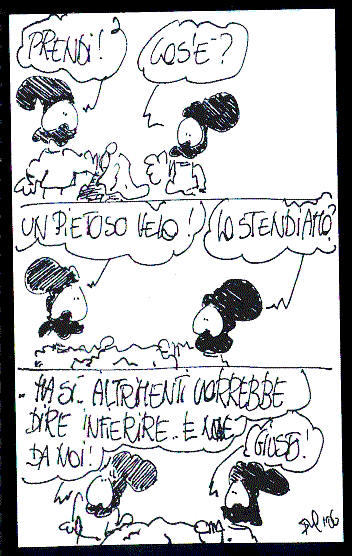 PRENDI!
COS'E'?
UN PIETOSO VELO!
LO STENDIAMO?
..MA SI.. ALTRIMENTI VORREBBE
DIRE INFIERIRE.. E NON E'
DA NOI!
GIUSTO!